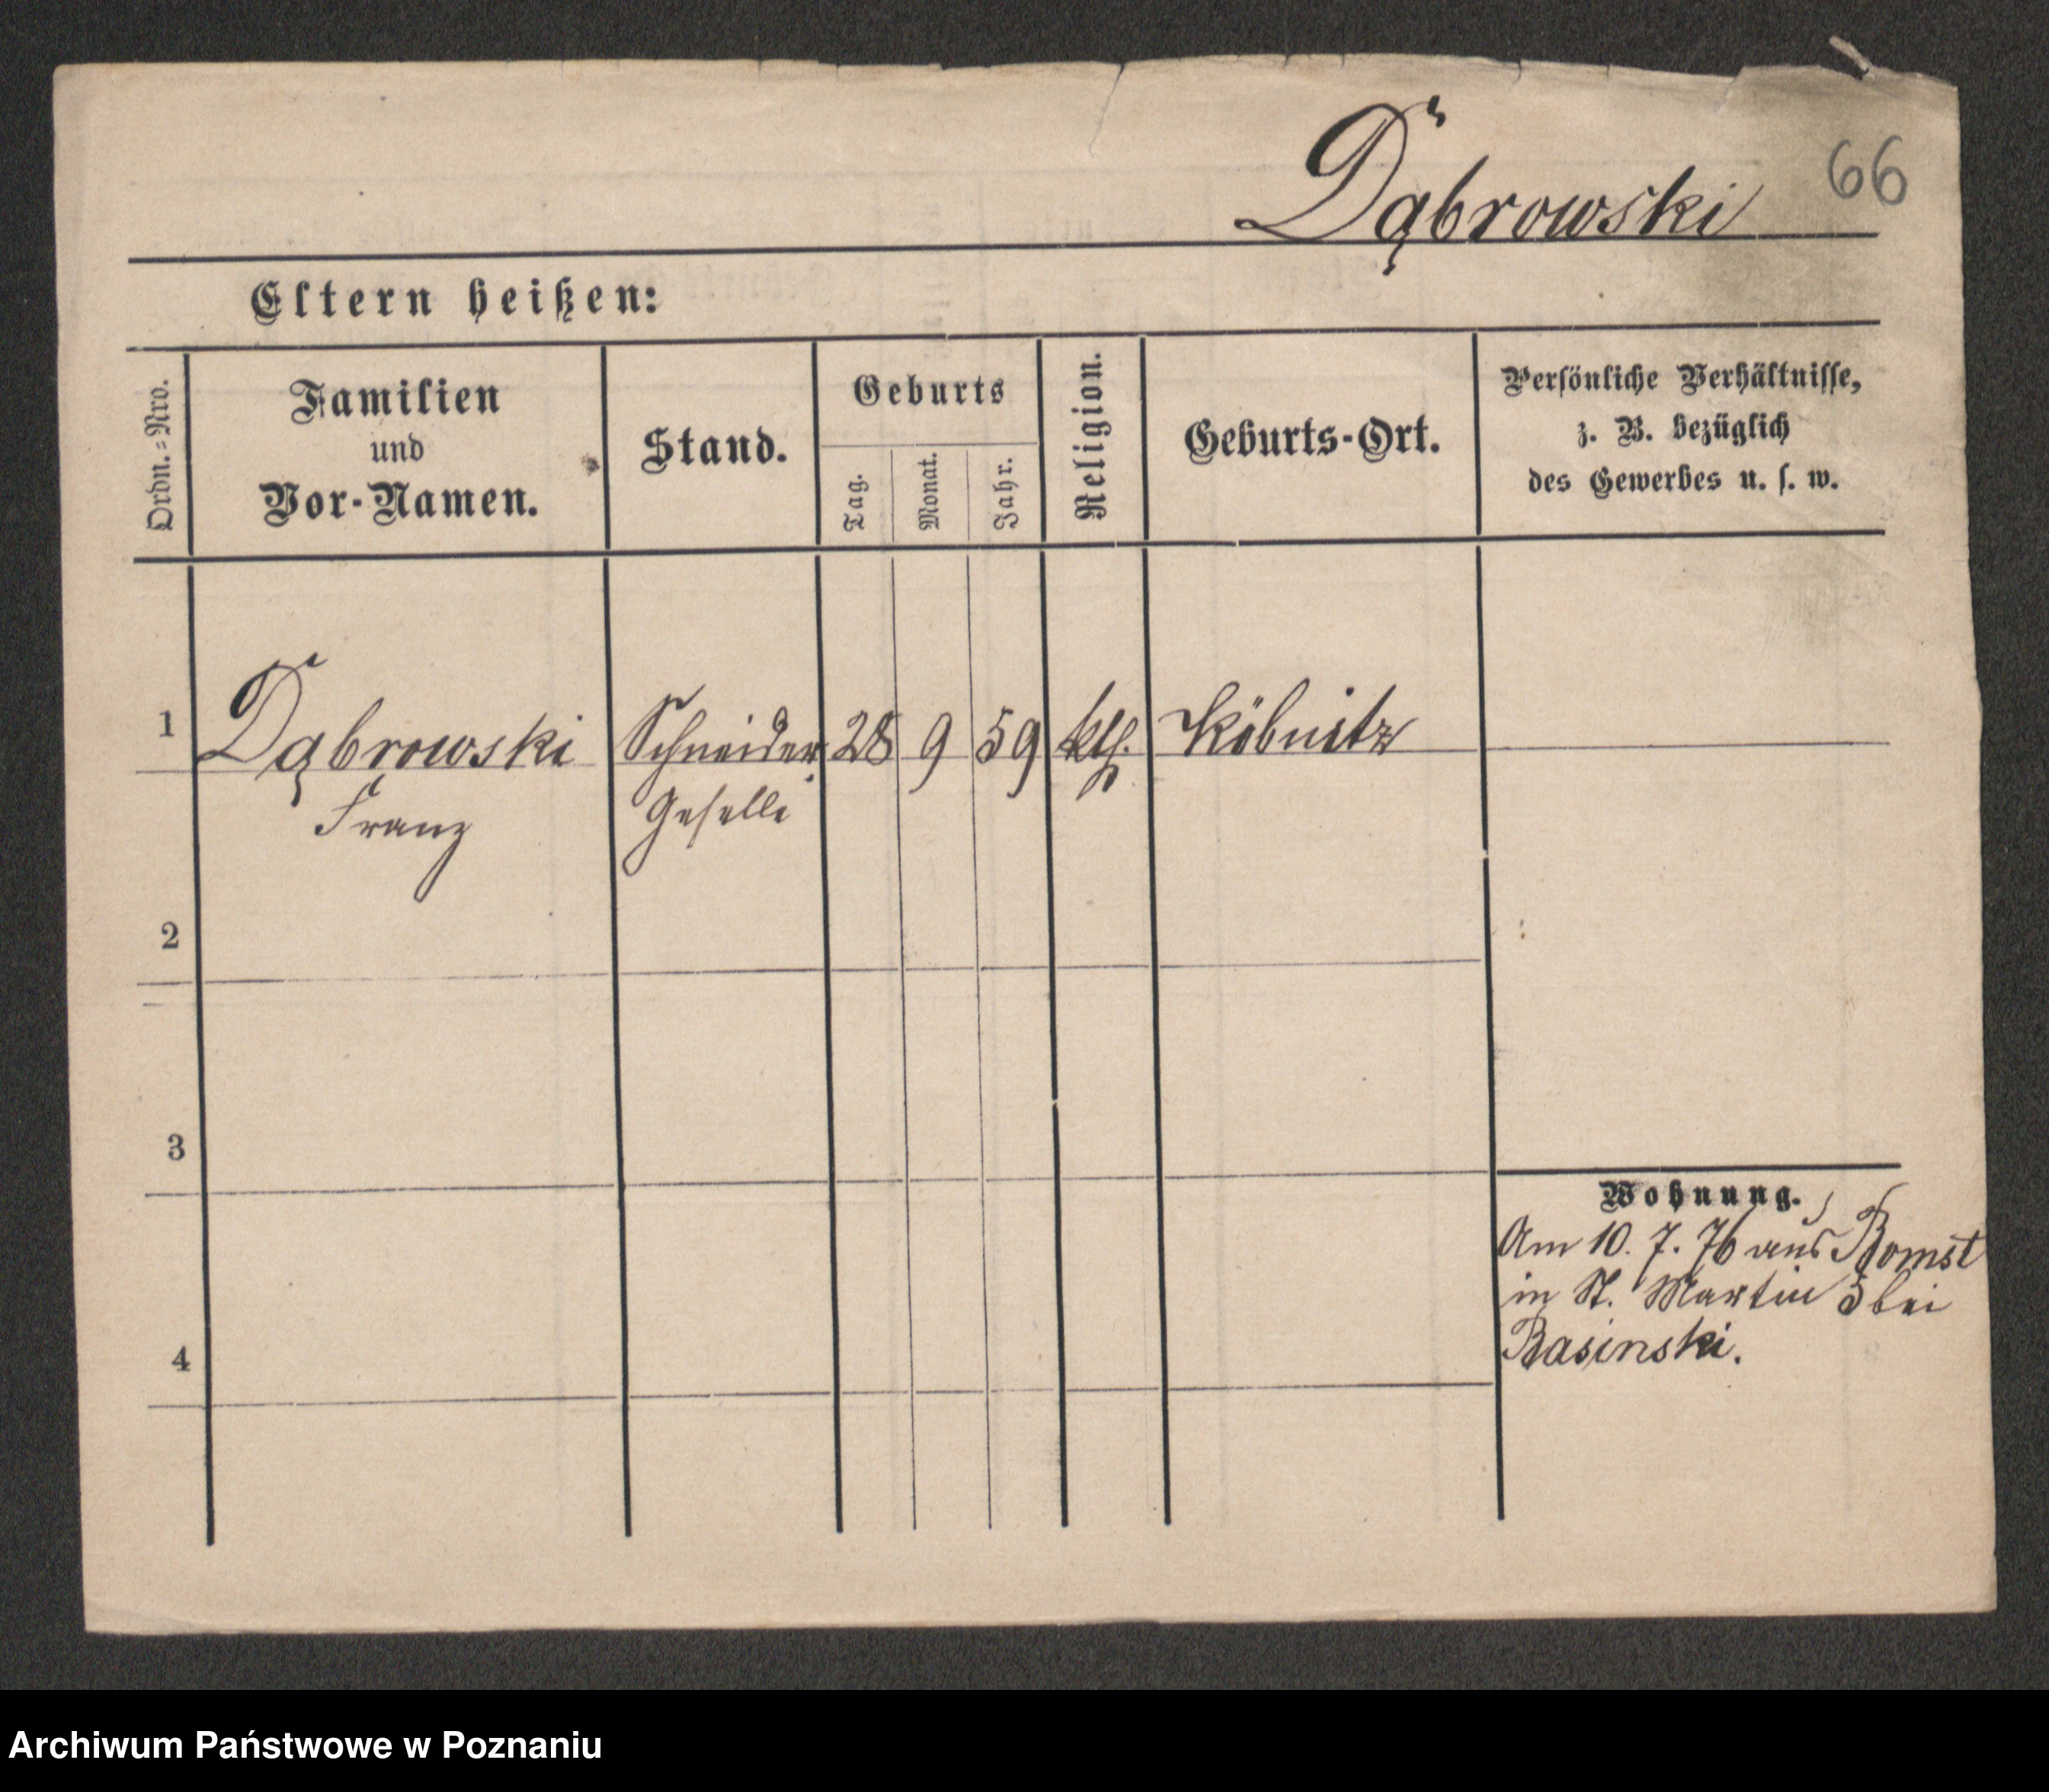 66
Dąbrowski
Eltern heißen:
Ordn.=Nro.
Familien
und
Vor-Namen.
Stand.
Geburts
Tag.
Monat.
Jahr.
Religion.
Geburts-Ort.
Persönliche Verhältnisse,
z. B. bezüglich
des Gewerbes u. s. w.
1 Dąbrowski Schneider 28 9 59 kth. Köbnitz
Franz Geselle
2
3
4
Wohnung.
Am 10. 7. 76 aus Bomst
in St. Martin 5 bei
Basinski.
Archiwum Państwowe w Poznaniu